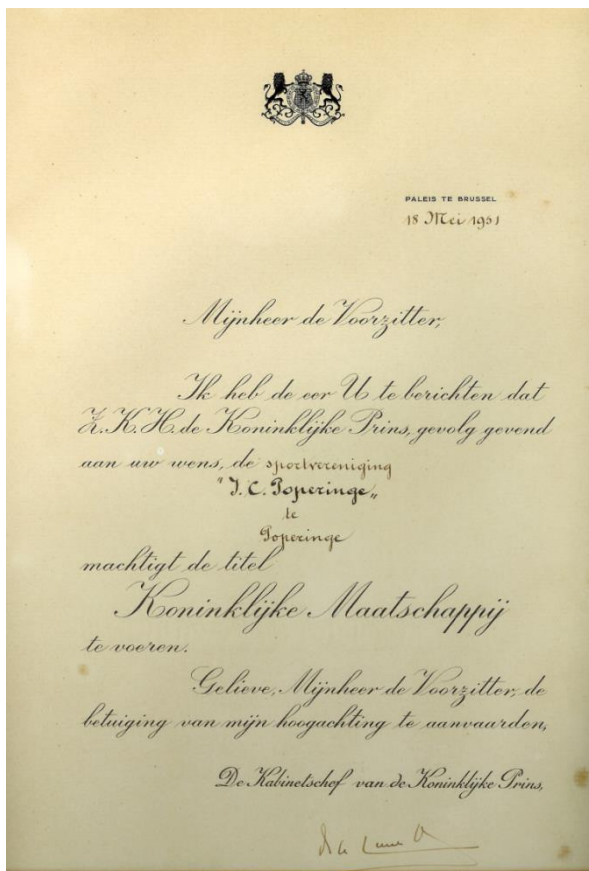 PALEIS TE BRUSSEL
18 Mei 1951
Mijnheer de Voorzitter,
Ik heb de eer U te berichten dat
Z.K.H. de Koninklijke Prins, gevolg gevend
aan uw wens, de sportvereniging
"F. C. Poperinge„
te
Poperinge
machtigt de titel
Koninklijke Maatschappij
te voeren.
Gelieve, Mijnheer de Voorzitter, de
betuiging van mijn hoogachting te aanvaarden,
De Kabinetschef van de Koninklijke Prins,